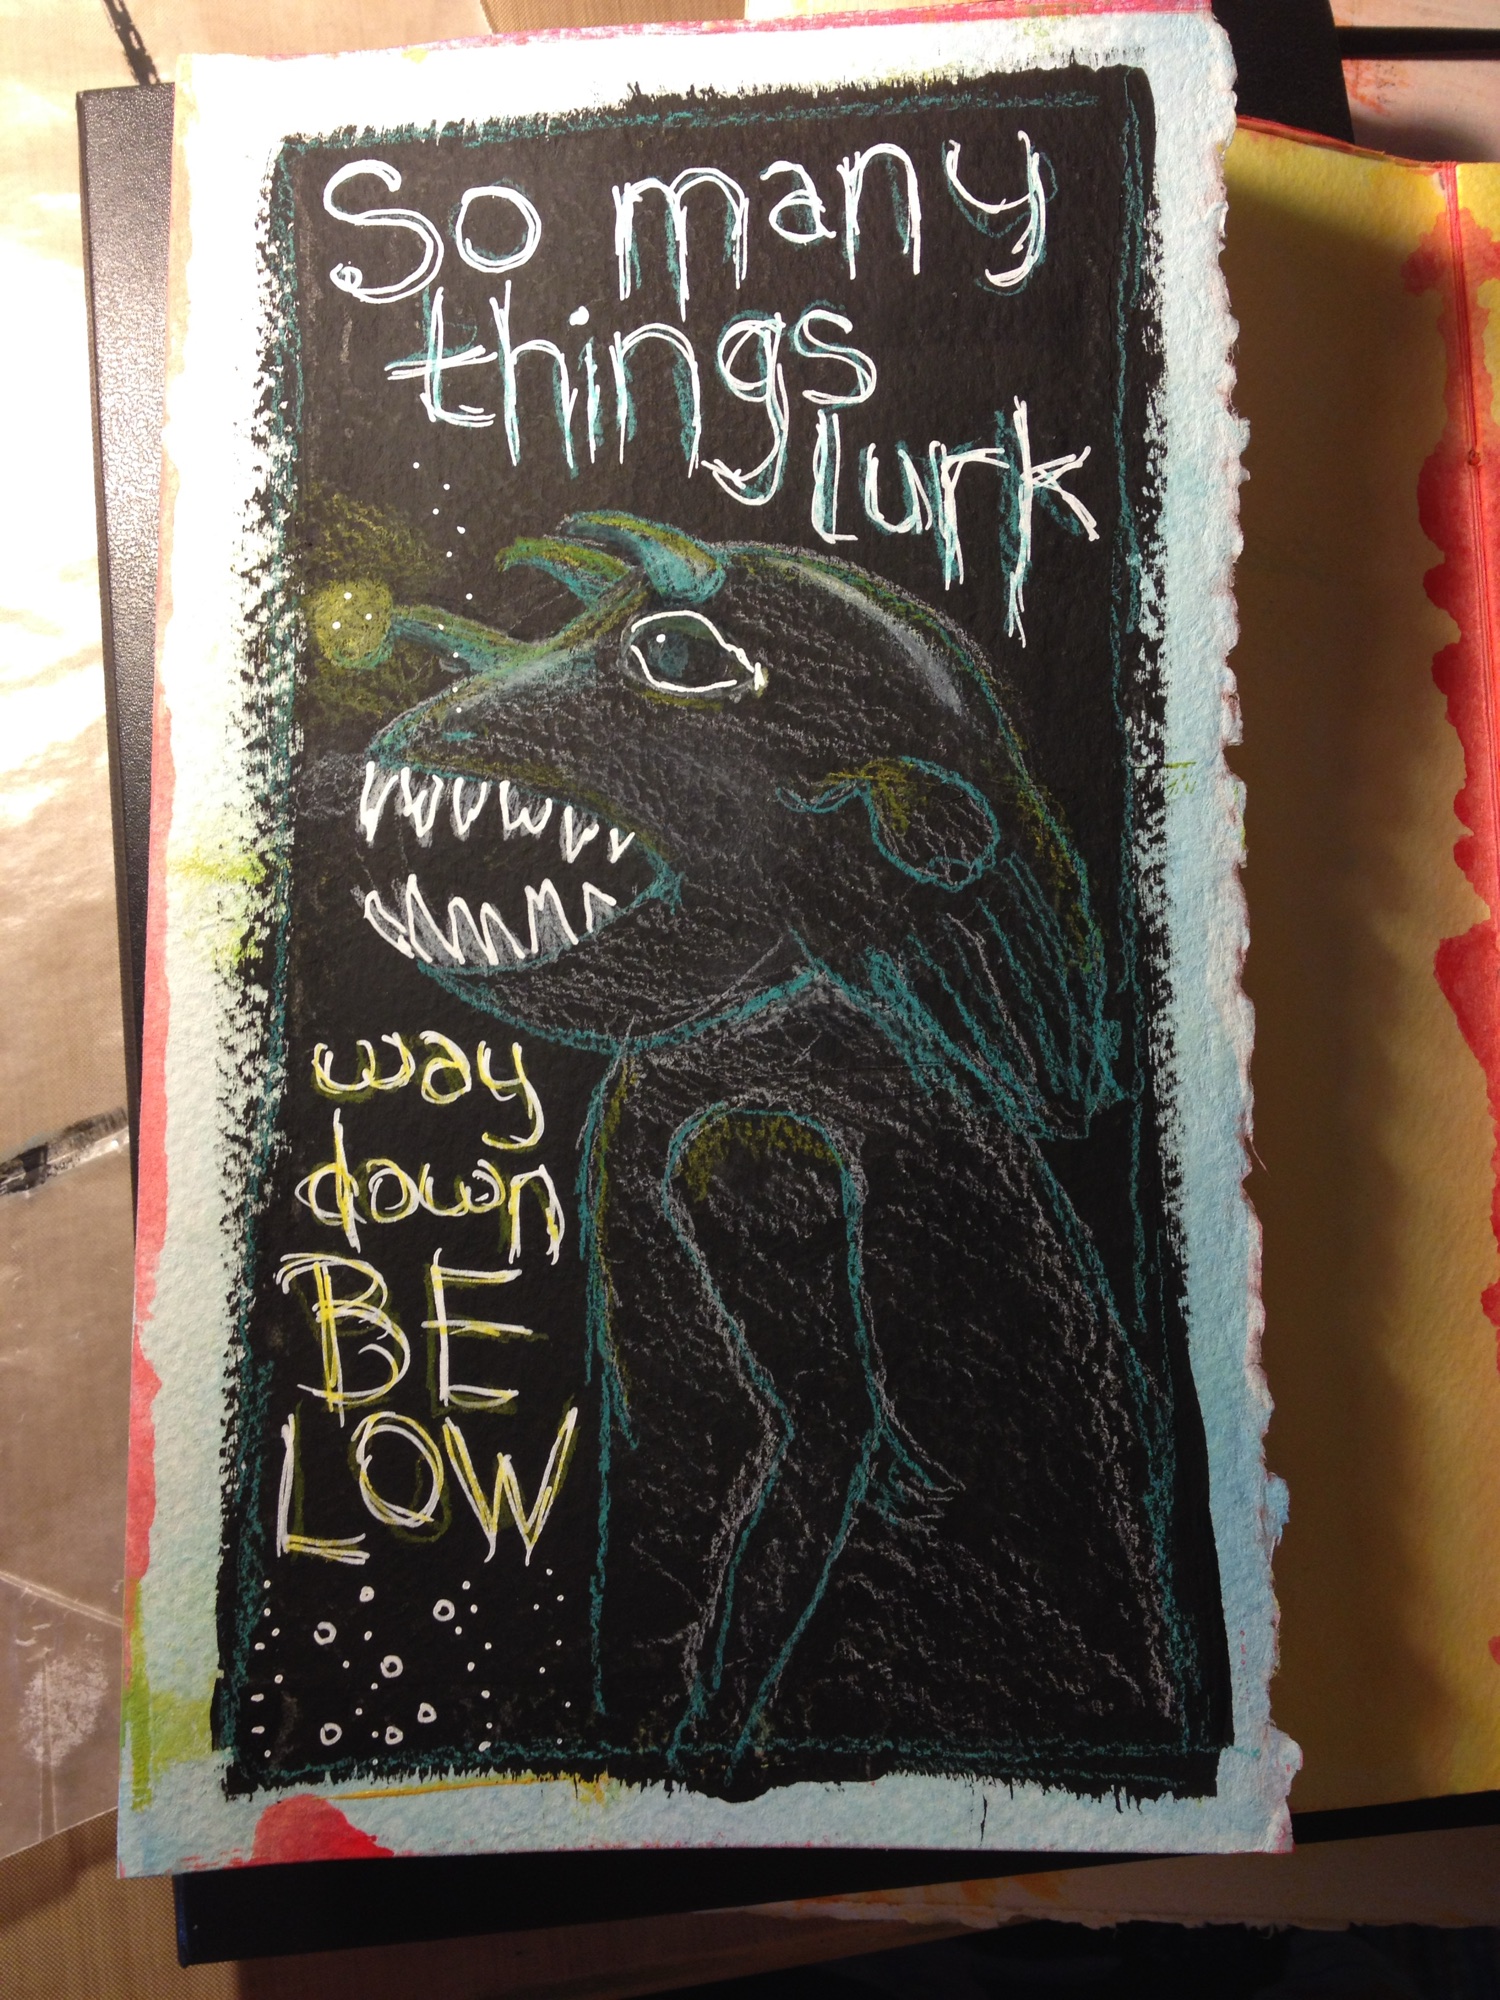 So many
things
lurk
way
down
BE
LOW